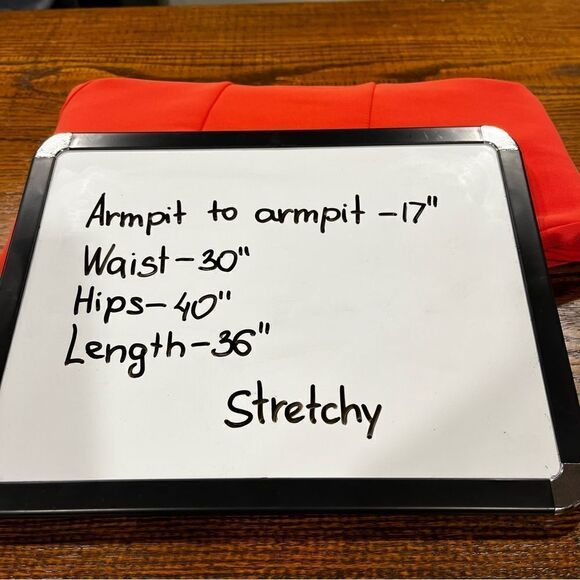 Armpit to armpit -17"
Waist-30"
Hips-40"
Length-36"
Stretchy